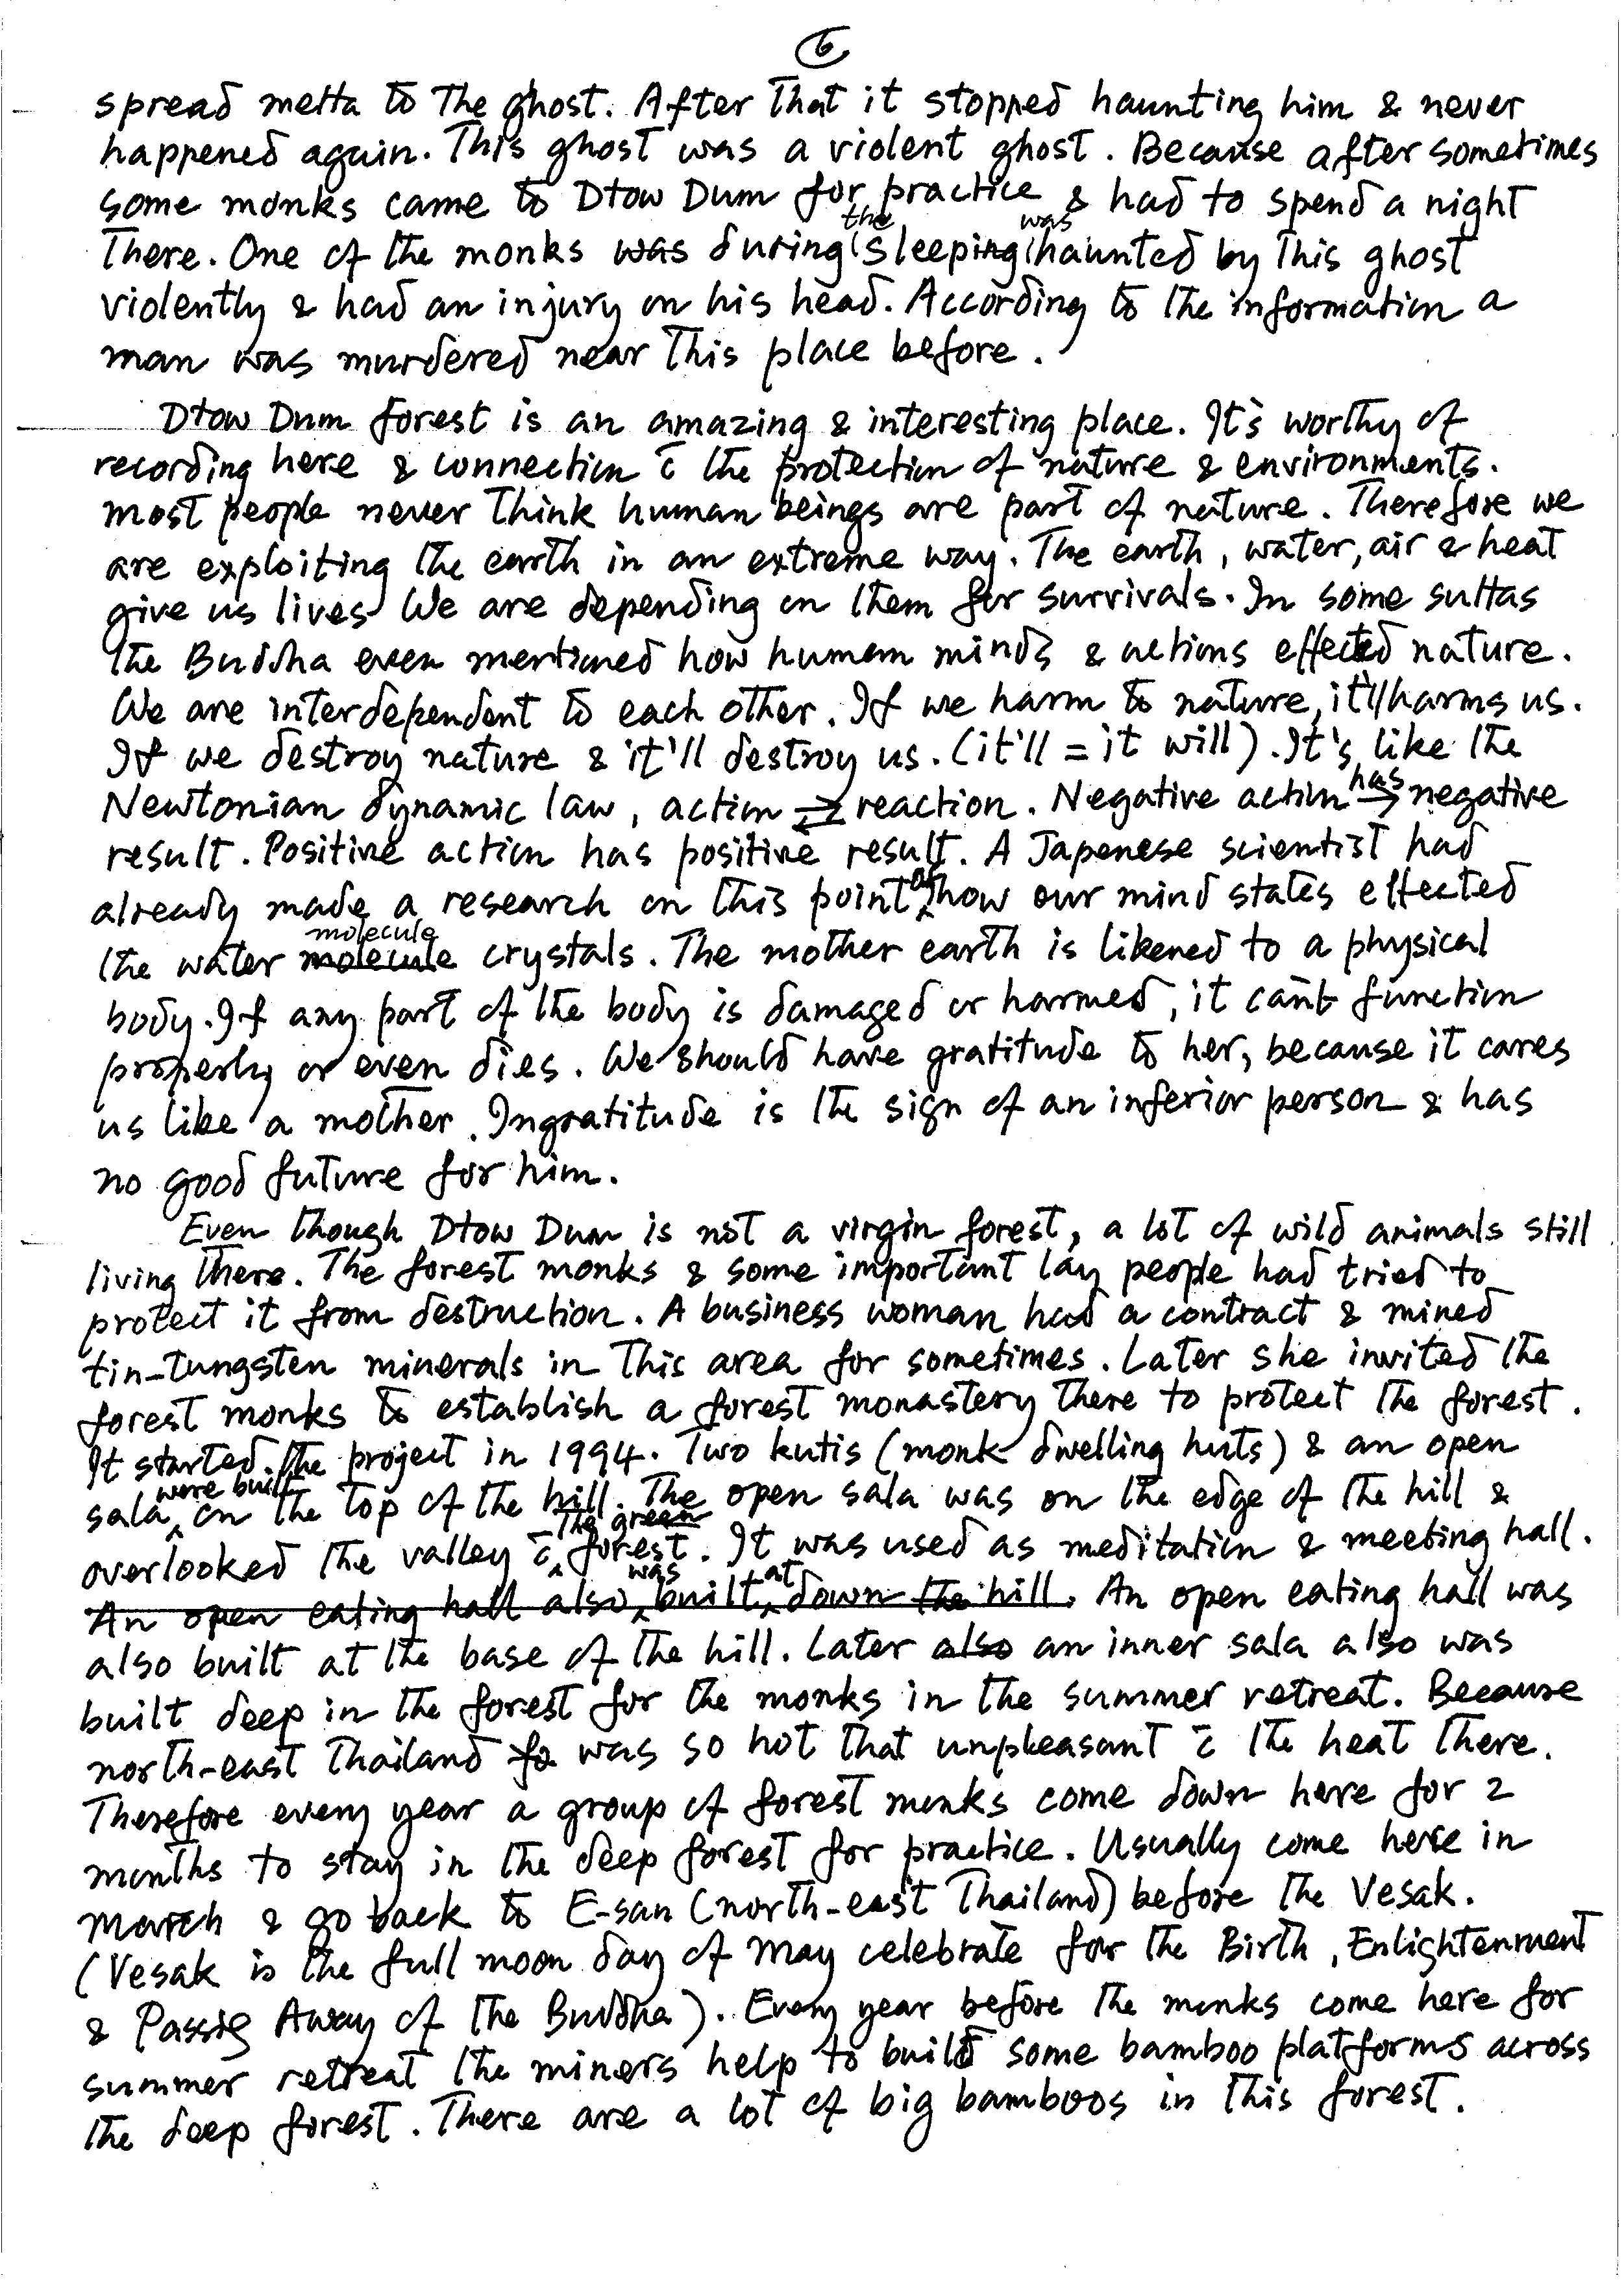 6
spread metta to the ghost. After that it stopped haunting him & never
happened again. This ghost was a violent ghost. Because after sometimes
some monks came to Dtow Dum for practice & had to spend a night
there. One of the monks was during the sleeping was haunted by this ghost
violently & had an injury on his head. According to the information a
man was murdered near this place before.
Dtow Dum forest is an amazing & interesting place. It's worthy of
recording here & connection c̄ the protection of nature & environments.
most people never think human beings are part of nature. Therefore we
are exploiting the earth in an extreme way. The earth, water, air & heat
give us lives. We are depending on them for survivals. In some suttas
the Buddha even mentioned how human minds & actions effected nature.
We are interdependent to each other. If we harm to nature, it'll harms us.
If we destroy nature & it'll destroy us. (it'll = it will). It's like the
Newtonian dynamic law, action ⇄ reaction. Negative action has → negative
result. Positive action has positive result. A Japenese scientist had
already made a research on this point of how our mind states effected
the water molecule molecule crystals. The mother earth is likened to a physical
body. If any part of the body is damaged or harmed, it can't function
properly or even dies. We should have gratitude to her, because it cares
us like a mother. Ingratitude is the sign of an inferior person & has
no good future for him.
Even though Dtow Dum is not a virgin forest, a lot of wild animals still
living there. The forest monks & some important lay people had tried to
protect it from destruction. A business woman had a contract & mined
tin-tungsten minerals in this area for sometimes. Later she invited the
forest monks to establish a forest monastery there to protect the forest.
It started the project in 1994. Two kutis (monk dwelling huts) & an open
sala were built on the top of the hill. The open sala was on the edge of the hill &
overlooked the valley c̄ the green forest. It was used as meditation & meeting hall.
An open eating hall also was built at down the hill. An open eating hall was
also built at the base of the hill. Later also an inner sala also was
built deep in the forest for the monks in the summer retreat. Because
north-east Thailand fo was so hot that unpleasant c̄ the heat there.
Therefore every year a group of forest monks come down here for 2
months to stay in the deep forest for practice. Usually come here in
March & go back to E-san (north-east Thailand) before the Vesak.
(Vesak is the full moon day of May celebrate for the Birth, Enlightenment
& Passig Away of the Buddha). Every year before the monks come here for
summer retreat the miners help to build some bamboo platforms across
the deep forest. There are a lot of big bamboos in this forest.